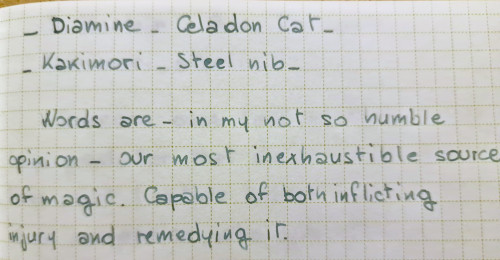 - Diamine - Celadon Cat -
- Kakimori - Steel nib -
Words are - in my not so humble
opinion - our most inexhaustible source
of magic. Capable of both inflicting
injury and remedying it.